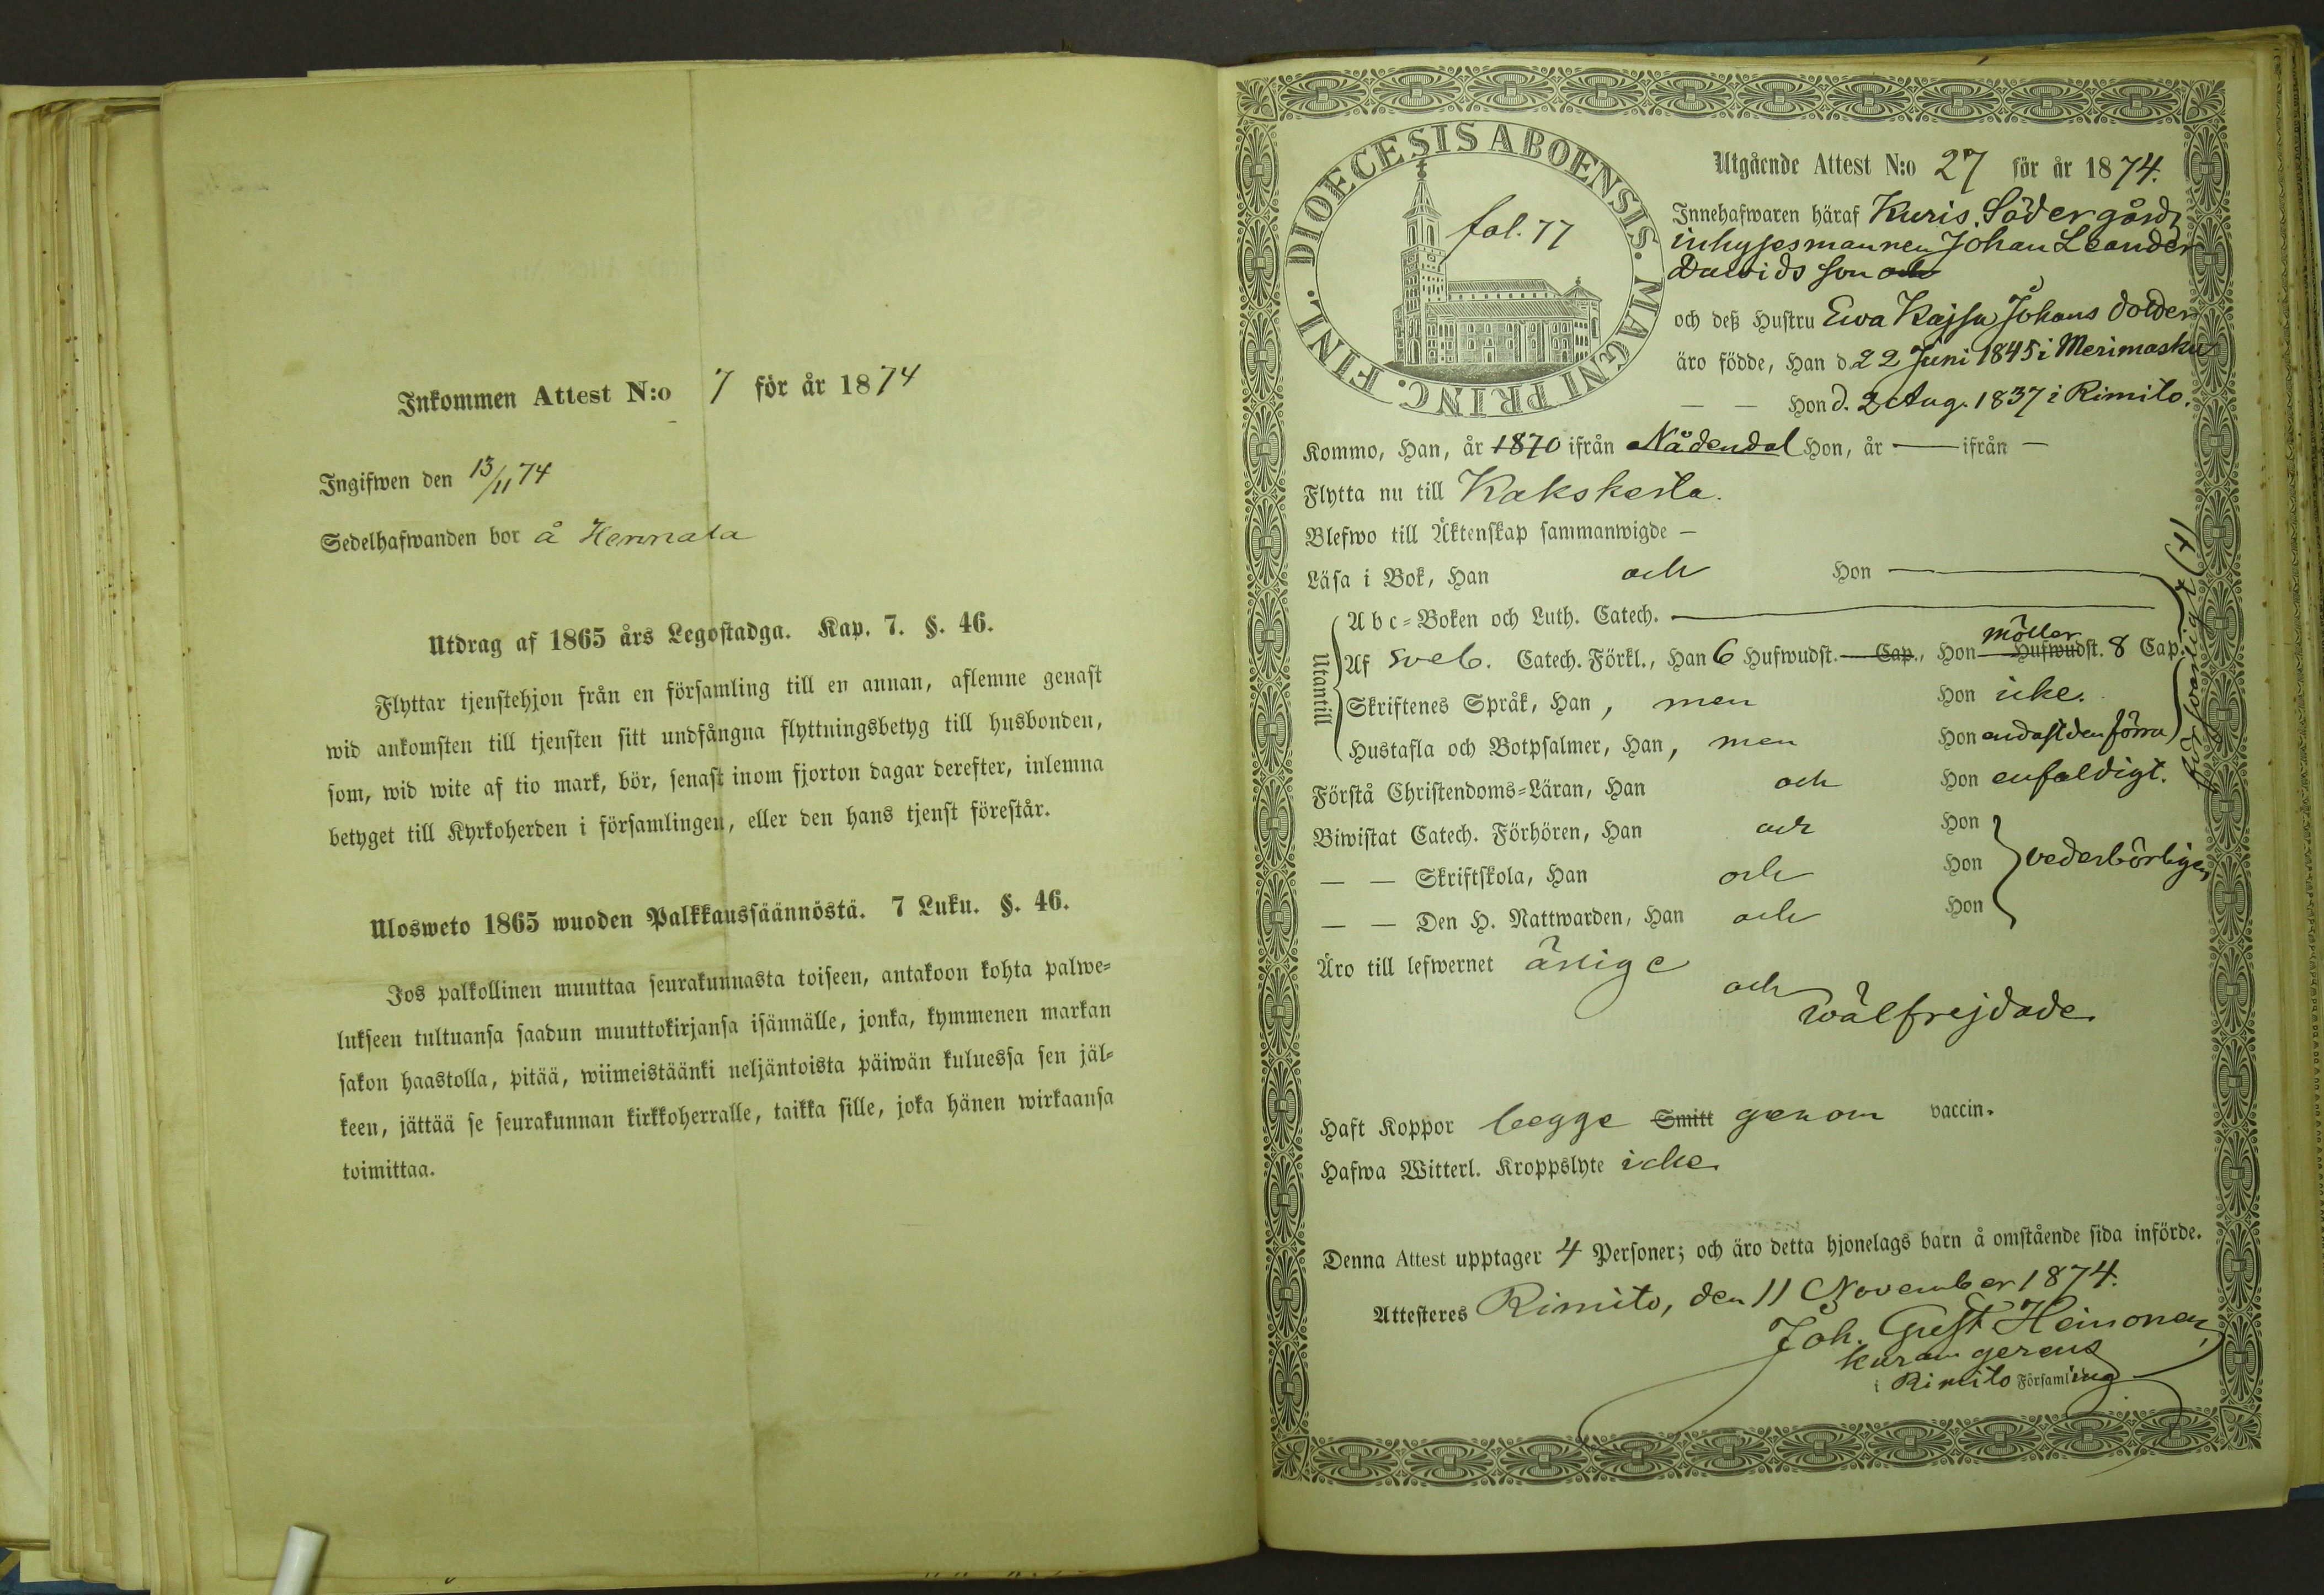 Inkommen Attest N:o 7 för år 1874
Ingifwen den 13/11 74
Sedelhafwanden bor å Hennala
Utdrag af 1865 års Legostadga. Kap. 7. §. 46.
Flyttar tjenstehjon från en församling till en annan, aflemne genast
wid ankomsten till tjensten sitt undfångna flyttningsbetyg till husbonden,
som, wid wite af tio mark, bör, senast inom fjorton dagar derefter, inlemna
betyget till Kyrkoherden i församlingen, eller den hans tjenst förestår.
Ulosweto 1865 wuoden Palkkaussäännöstä. 7 Luku. §. 46.
Jos palkollinen muuttaa seurakunnasta toiseen, antakoon kohta palwe-
lukseen tultuansa saadun muuttokirjansa isännälle, jonka, kymmenen markan
sakon haastolla, pitää, wiimeistäänki neljäntoista päiwän kuluessa sen jäl-
keen, jättää se seurakunnan kirkkoherralle, taikka sille, joka hänen wirkaansa
toimittaa.
DIOECESIS ABOENSIS. MAGNI PRINC. FINL.
fol. 77
Utgående Attest N:o 27 för år 1874.
Innehafwaren häraf Kuris Södergård,
inhysesmannen Johan Leander
Dawids son och
och deß Hustru Ewa Kajsa Johans dotter
äro födde, Han d. 22 Juni 1845 i Merimasku
— — Hon d. 2 Aug. 1837 i Rimito.
Kommo, Han, år 1870 ifrån Nådendal Hon, år — ifrån —
Flytta nu till Kakskerta.
Blefwo till Äktenskap sammanwigde —
Läsa i Bok, Han och Hon —
Utantill
Abc-Boken och Luth. Catech. —
Af Sveb. Catech. Förkl., Han 6 Hufwudst. Cap., Hon Möller Hufwudst. 8 Cap.
Skriftenes Språk, Han, men Hon icke.
Hustafla och Botpsalmer, Han, men Hon endast den förra
försvarligt (4)
Förstå Christendoms-Läran, Han och Hon enfaldigt.
Biwistat Catech. Förhören, Han och Hon
— — Skriftskola, Han och Hon vederbörligen
— — Den H. Nattwarden, Han och Hon
Äro till lefwernet ärlige
och
wälfrejdade
Haft Koppor begge Smitt genom vaccin.
Hafwa Witterl. Kroppslyte icke
Denna Attest upptager 4 Personer; och äro detta hjonelags barn å omstående sida införde.
Attesteres Rimito, den 11 November 1874.
Joh. Gust Heinonen,
kuram gerens
i Rimito Församling